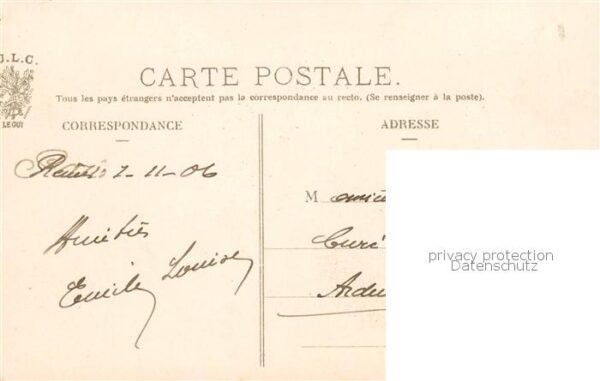 J.L.C.
LE GUI
CARTE POSTALE.
Tous les pays étrangers n'acceptent pas la correspondance au recto. (Se renseigner à la poste).
CORRESPONDANCE
ADRESSE
1-11-06
M
Curé
Amitiés
Emile Louise
privacy protection
Datenschutz